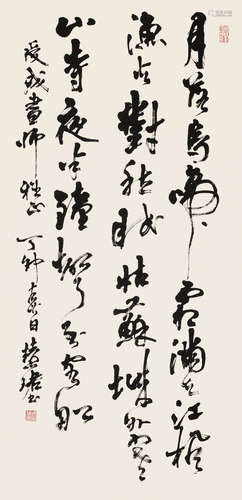 月落烏啼霜滿天江楓
漁火對愁眠姑蘇城外寒
山寺夜半鐘聲到客船
畫師 正 丁卯 日 書